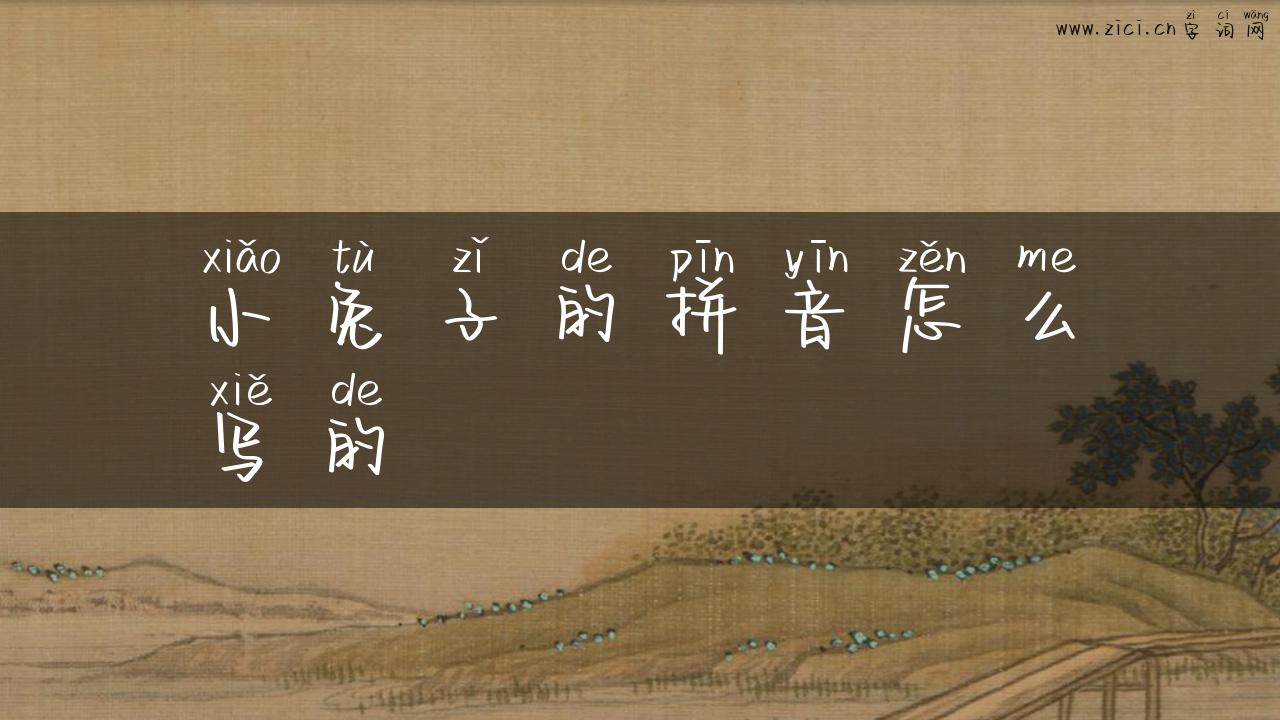 zì cí wǎng
www.zici.cn 字词网
xiǎo tù zǐ de pīn yīn zěn me
小兔子的拼音怎么
xiě de
写的